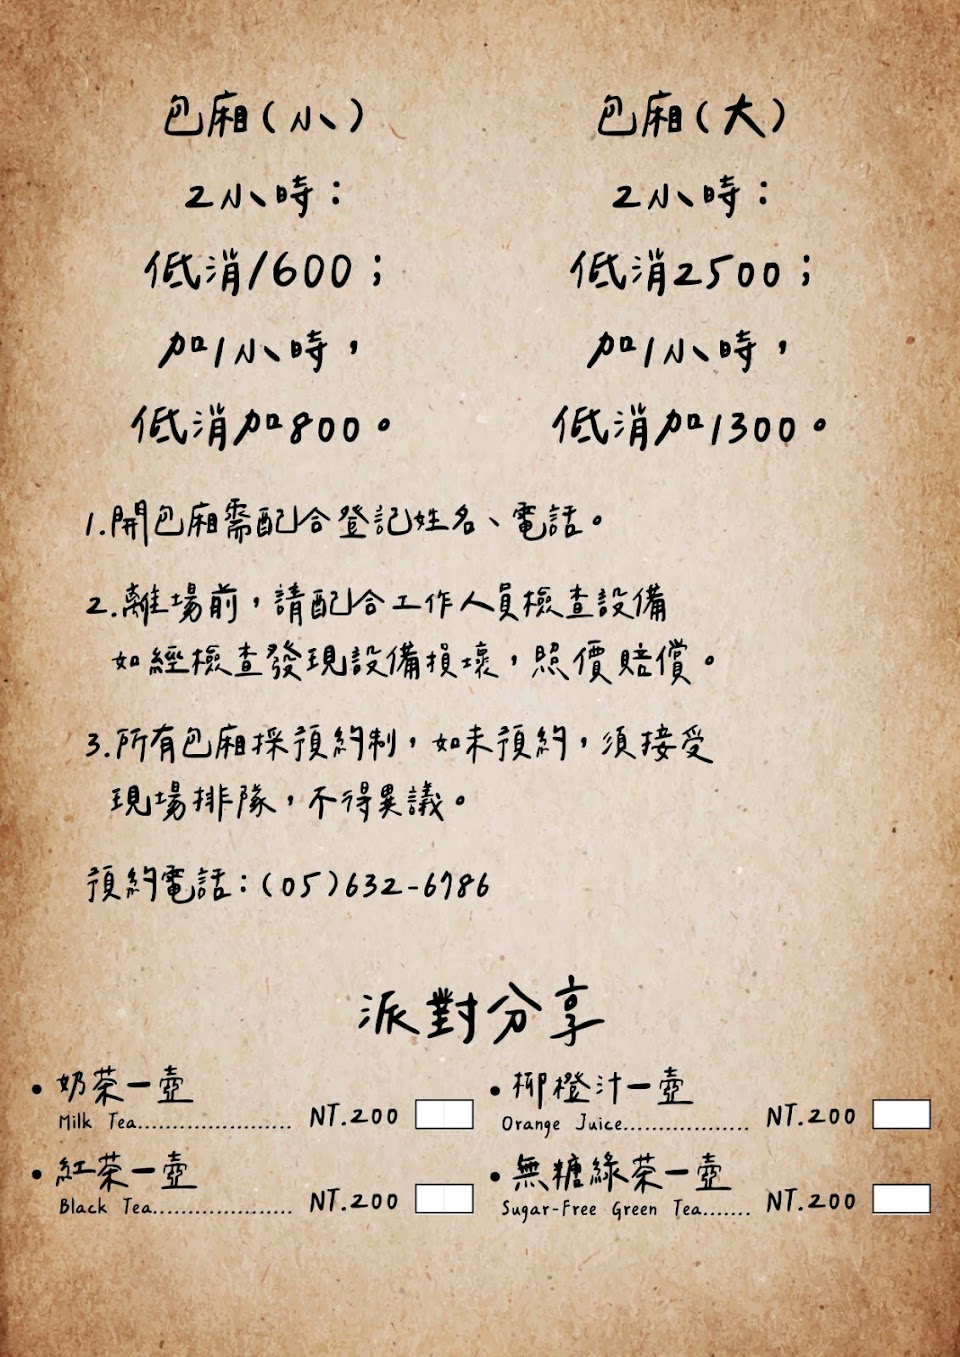 包廂(小)
2小時：
低消1600；
加1小時，
低消加800。
包廂(大)
2小時：
低消2500；
加1小時，
低消加1300。
1.開包廂需配合登記姓名、電話。
2.離場前，請配合工作人員檢查設備
如經檢查發現設備損壞，照價賠償。
3.所有包廂採預約制，如未預約，須接受
現場排隊，不得異議。
預約電話：(05)632-6786
派對分享
• 奶茶一壺
Milk Tea..................... NT.200
• 紅茶一壺
Black Tea.................... NT.200
• 柳橙汁一壺
Orange Juice.................. NT.200
• 無糖綠茶一壺
Sugar-Free Green Tea....... NT.200